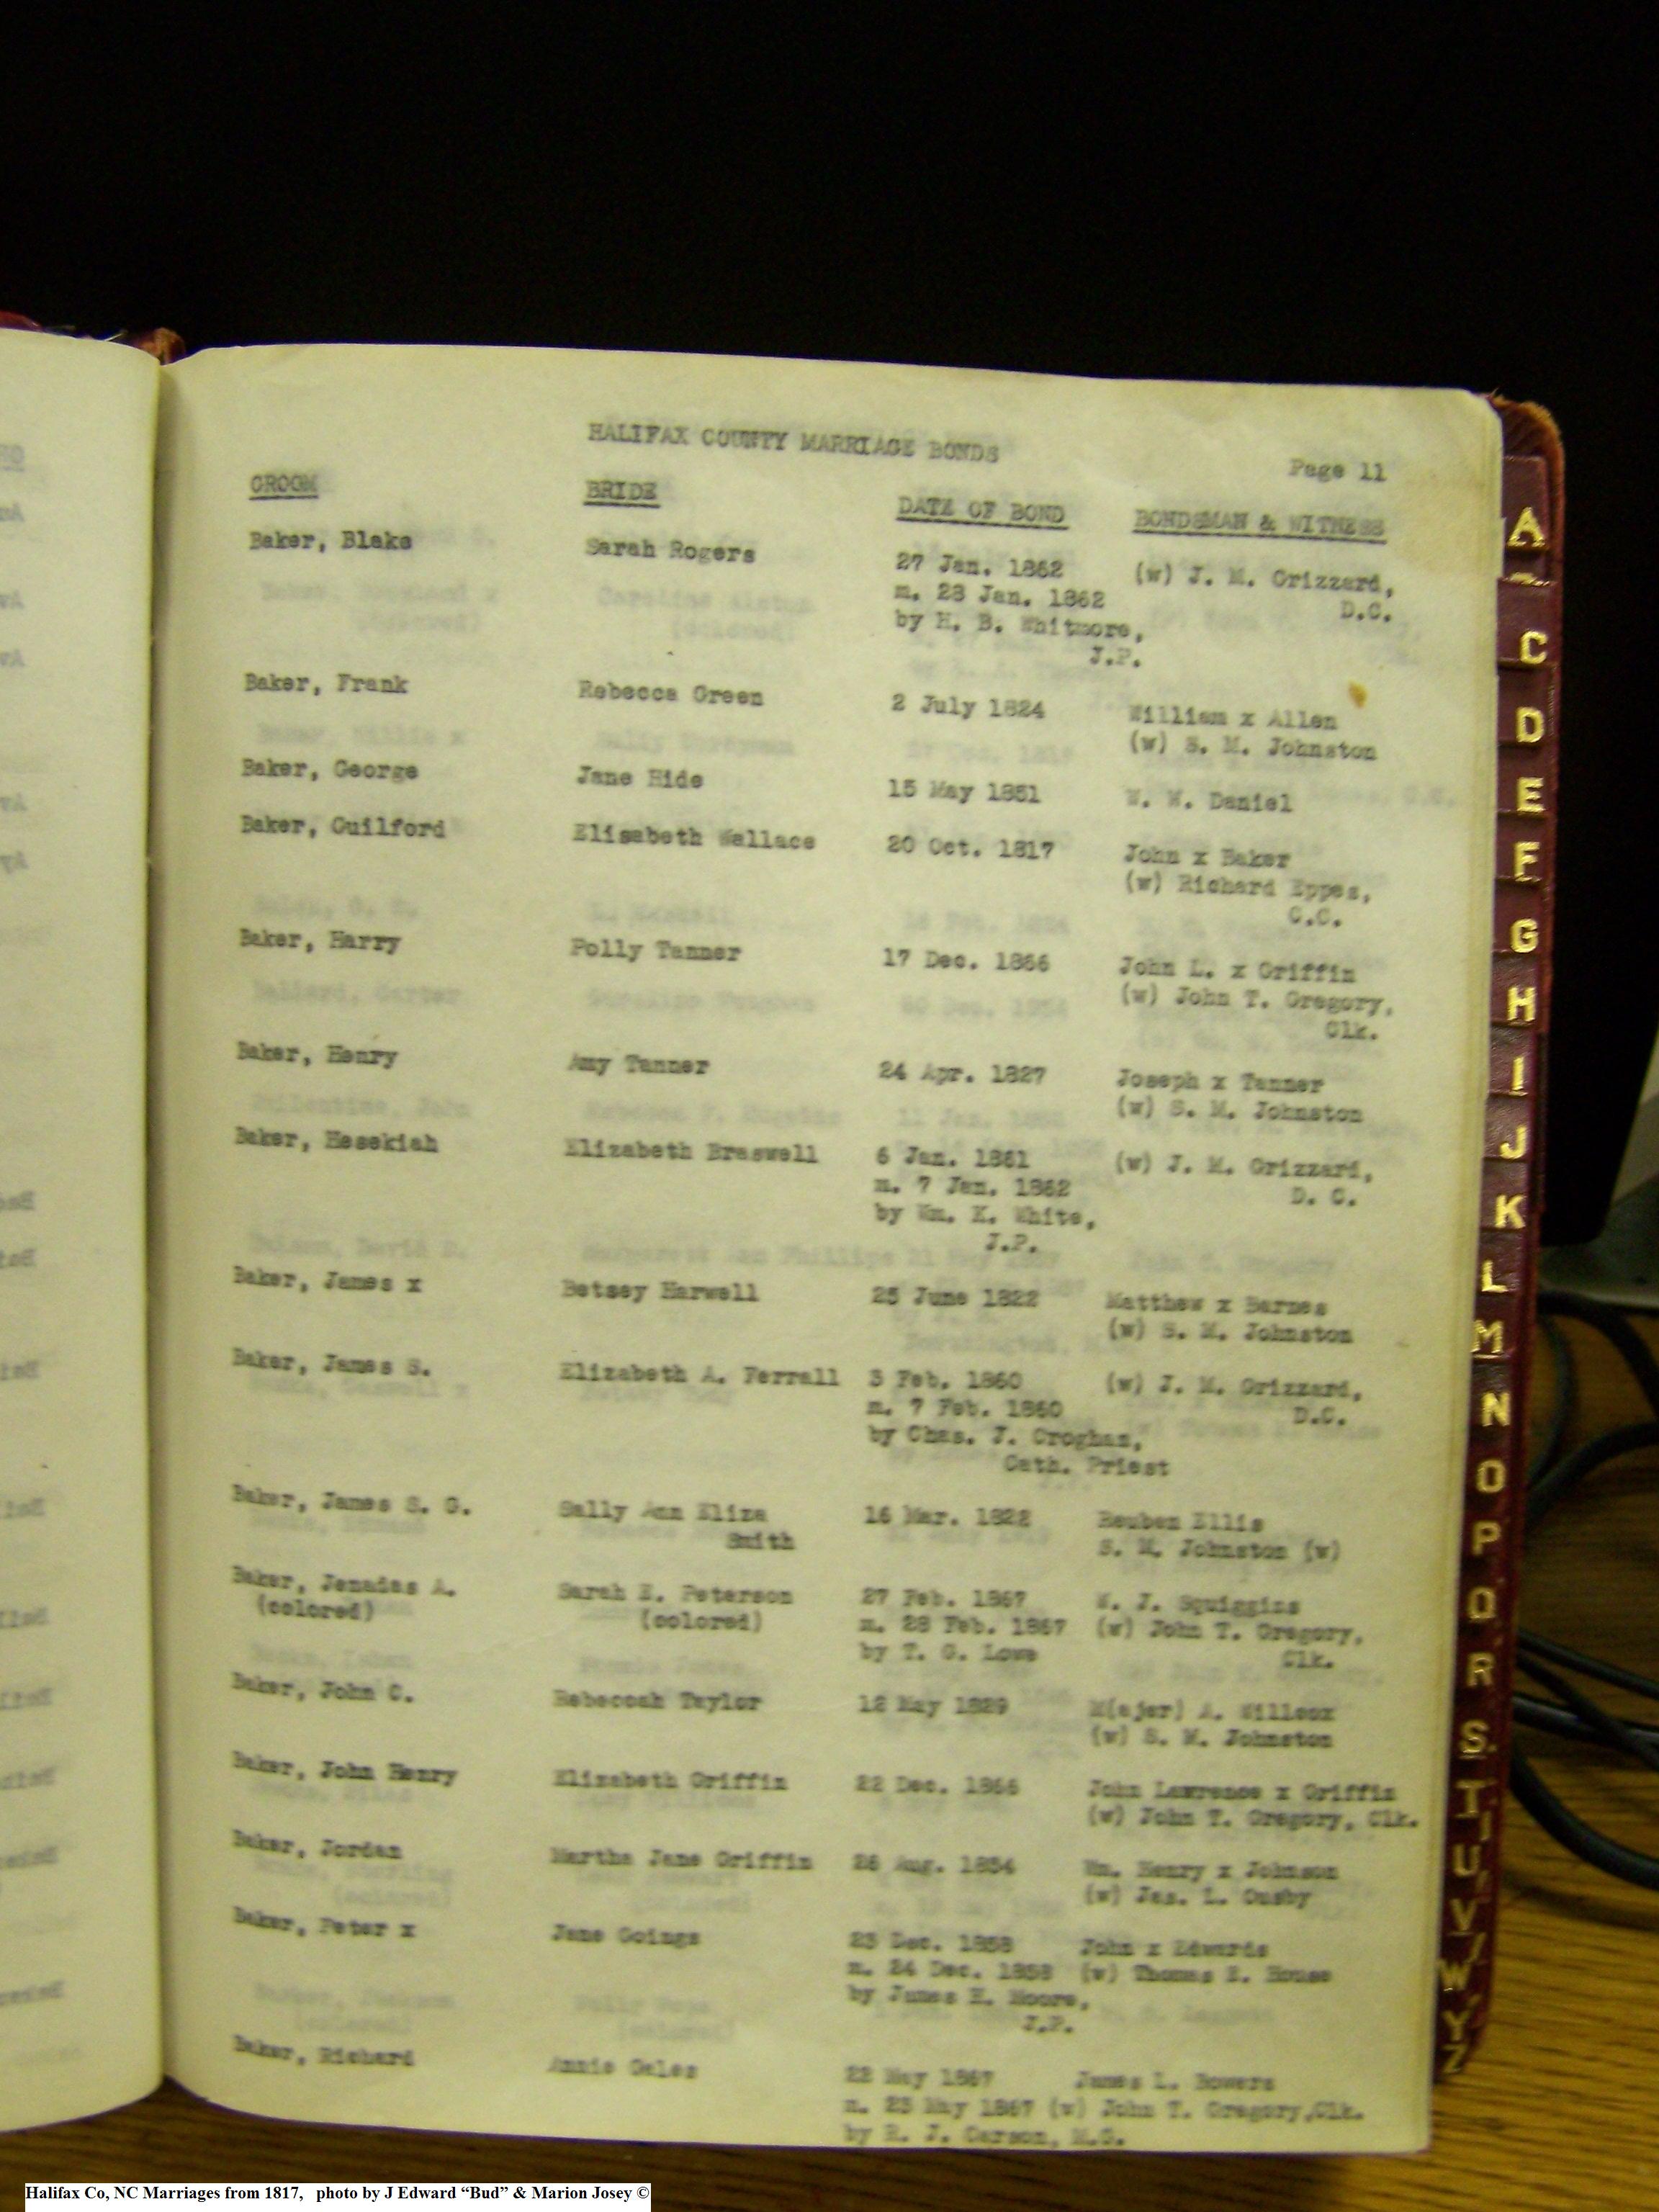 HALIFAX COUNTY MARRIAGE BONDS
Page 11
GROOM BRIDE DATE OF BOND BONDSMAN & WITNESS
Baker, Blake Sarah Rogers 27 Jan. 1862 (w) J. M. Grizzard,
m. 28 Jan. 1862 D.C.
by H. B. Whitmore,
J.P.
Baker, Frank Rebecca Green 2 July 1824 William x Allen
(w) S. M. Johnston
Baker, George Jane Hide 15 May 1851 W. W. Daniel
Baker, Guilford Elisabeth Wallace 20 Oct. 1817 John x Baker
(w) Richard Eppes,
C.C.
Baker, Harry Polly Tanner 17 Dec. 1866 John L. x Griffin
(w) John T. Gregory,
Clk.
Baker, Henry Amy Tanner 24 Apr. 1827 Joseph x Tanner
(w) S. M. Johnston
Baker, Hesekiah Elizabeth Braswell 6 Jan. 1861 (w) J. M. Grizzard,
m. 7 Jan. 1862 D. C.
by Wm. K. White,
J.P.
Baker, James x Betsey Harwell 25 June 1822 Matthew x Barnes
(w) S. M. Johnston
Baker, James S. Elizabeth A. Ferrall 3 Feb. 1860 (w) J. M. Grizzard,
m. 7 Feb. 1860 D.C.
by Chas. J. Croghan,
Cath. Priest
Baker, James S. G. Sally Ann Eliza 16 Mar. 1822 Reuben Ellis
Smith S. M. Johnston (w)
Baker, Jenadas A. Sarah E. Peterson 27 Feb. 1867 W. J. Squiggins
(colored) (colored) m. 28 Feb. 1867 (w) John T. Gregory,
by T. G. Lowe Clk.
Baker, John C. Rebecoah Taylor 12 May 1829 M(ajor) A. Willcox
(w) S. M. Johnston
Baker, John Henry Elizabeth Griffin 22 Dec. 1866 John Lawrence x Griffin
(w) John T. Gregory, Clk.
Baker, Jordan Martha Jane Griffin 26 Aug. 1854 Wm. Henry x Johnson
(w) Jas. L. Ousby
Baker, Peter x Jane Goings 23 Dec. 1858 John x Edwards
m. 24 Dec. 1858 (w) Thomas E. House
by James H. Moore,
J.P.
Baker, Richard Annie Gales 22 May 1867 James L. Bowers
m. 23 May 1867 (w) John T. Gregory,Clk.
by R. J. Carson, M.G.
A
C
D
E
F
G
H
I
J
K
L
M
N
O
P
Q
R
S
T
U
V
W
Y
Z
Halifax Co, NC Marriages from 1817, photo by J Edward “Bud” & Marion Josey ©